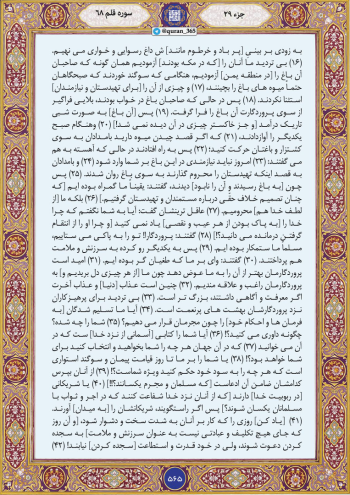 جزء ۲۹
@quran_365
سوره قلم ۶۸
به زودی بر بینی [پر باد و خرطوم مانند]ش داغ رسوایی و خواری می نهیم.
(۱۶) بی تردید ما آنان را [که در مکه بودند] آزمودیم همان گونه که صاحبان
آن باغ را [در منطقه یمن] آزمودیم، هنگامی که سوگند خوردند که صبحگاهان
حتما میوه های باغ را بچینند (۱۷) و چیزی از آن را [برای تهیدستان و نیازمندان]
استثنا نکردند. (۱۸) پس در حالی که صاحبان باغ در خواب بودند، بلایی فراگیر
از سوی پروردگارت آن باغ را فرا گرفت. (۱۹) پس [آن باغ] به صورت شبی
تاریک درآمد [و جز خاکستر چیزی در آن دیده نمی شد!] (۲۰) وهنگام صبح
یکدیگر را آوازدادند، (۲۱) که اگر قصد چیدن میوه دارید بامدادان به سوی
کشتزار و باغتان حرکت کنید؛ (۲۲) پس به راه افتادند در حالی که آهسته به هم
می گفتند: (۲۳) امروز نباید نیازمندی در این باغ بر شما وارد شود (۲۴) و بامدادان
به قصد اینکه تهیدستان را محروم گذارند به سوی باغ روان شدند. (۲۵) پس
چون [به باغ رسیدند و آن را نابود] دیدند، گفتند: یقینا ما گمراه بوده ایم [که
چنان تصمیم خلاف حقی درباره مستمندان و تهیدستان گرفتیم.] (۲۶) بلکه ما [از
لطف خدا هم] محرومیم. (۲۷) عاقل ترینشان گفت: آیا به شما نگفتم که چرا
خدا را [به پاک بودن از هر عیب و نقصی] یاد نمی کنید [و چرا او را از انتقام
گرفتن درمانده می دانید؟!] (۲۸) گفتند: پروردگارا! تو را به پاکی می ستاییم،
مسلما ما ستمکار بوده ایم. (۲۹) پس به یکدیگر رو کرده به سرزنش و ملامت
هم پرداختند. (۳۰) گفتند: وای بر ما که طغیان گر بوده ایم. (۳۱) امید است
پروردگارمان بهتر از آن را به ما عوض دهد چون ما [از هر چیزی دل بریدیم و] به
پروردگارمان راغب و علاقه مندیم. (۳۲) چنین است عذاب [دنیا] و عذاب آخرت
اگر معرفت و آگاهی داشتند، بزرگ تر است. (۳۳) بی تردید برای پرهیزکاران
نزد پروردگارشان بهشت های پرنعمت است. (۳۴) آیا ما تسلیم شدگان [به
فرمان ها و احکام خود] را چون مجرمان قرار می دهیم؟ (۳۵) شما را چه شده؟
چگونه داوری می کنید؟! (۳۶) آیا شما را کتابی [آسمانی از نزد خدا] ست که در
آن می خوانید (۳۷) که در آن جهان هر چه را شما بخواهید و انتخاب کنید برای
شما خواهد بود؟! (۳۸) یا شما را بر ما تا روز قیامت پیمان و سوگند استواری
است که هر چه را به سود خود حکم کنید ویژه شماست؟! (۳۹) از آنان بپرس
کدامشان ضامن آن ادعاست [که مسلمان و مجرم یکسانند؟!] (۴۰) یا شریکانی
[در ربوبیت خدا] دارند [که از آنان نزد خدا شفاعت کنند که در اجر و ثواب با
مسلمانان یکسان شوند؟] پس اگر راستگویند، شریکانشان را [به میدان] آورند.
(۴۱) [یاد کن] روزی را که کار بر آنان به شدت سخت و دشوار شود، [و آن روز
که جای هیچ تکلیف و عبادتی نیست به عنوان سرزنش و ملامت] به سجده
کردن دعوت شوند، ولی در خود قدرت و استطاعت [سجده کردن] نیابند! (۴۲)
۵۶۵